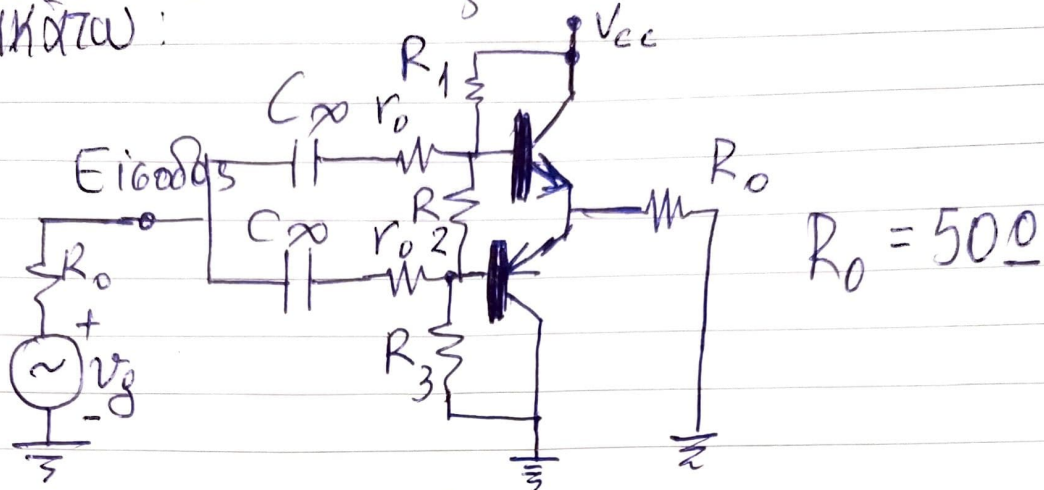 ικάτω :
Vcc
R1
C∞ r0
Είσοδος
R0
R2
C∞ r0
R0 = 50Ω
R0
+
Vg
-
R3